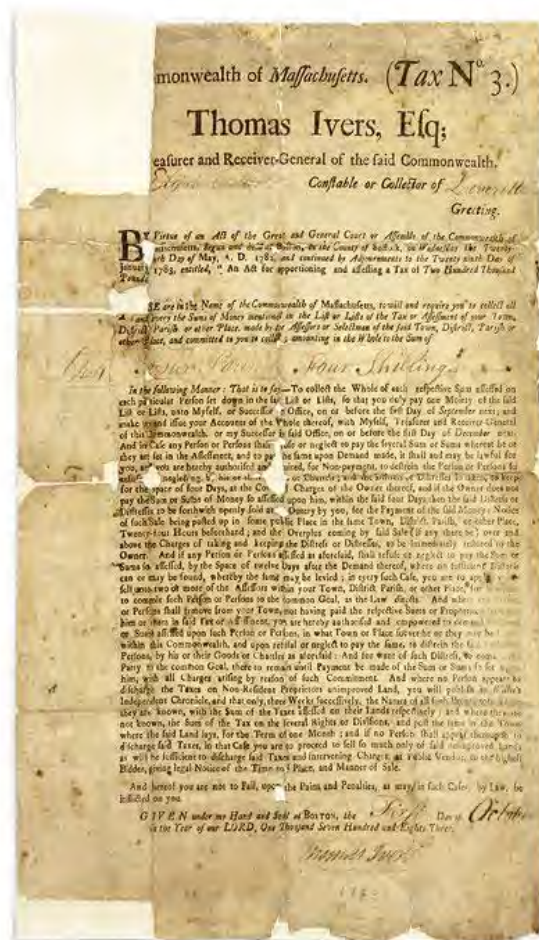 monwealth of Maſſachuſetts. (Tax No. 3.)
Thomas Ivers, Eſq;
eaſurer and Receiver-General of the ſaid Commonwealth.
Conſtable or Collector of Leverett
Greeting.
BY Virtue of an Act of the Great and General Court or Aſſembly of the Commonwealth of
aſſachuſetts, begun and held at Boſton, in the County of Suffolk, on Wedneſday the Twenty-
Day of May, A. D. 1782, and continued by Adjournments to the Twenty ninth Day of
January 1783, entitled, " An Act for apportioning and aſſeſſing a Tax of Two Hundred Thouſand
Pounds
SE are in the Name of the Commonwealth of Maſſachuſetts, to will and require you to collect all
and every the Sums of Money mentioned in the Liſt or Liſts of the Tax or Aſſeſſment of your Town,
Diſtrict, Pariſh or other Place, made by the Aſſeſſors or Selectmen of the ſaid Town, Diſtrict, Pariſh or
other Place, and committed to you to collect; amounting in the Whole to the Sum of
Four Shillings
In the following Manner: That is to ſay—To collect the Whole of each reſpective Sum aſſeſſed on
each particular Perſon ſet down in the ſaid Liſt or Liſts, ſo that you duly pay one Moiety of the ſaid
Liſt or Liſts, unto Myſelf, or Succeſſor in Office, on or before the firſt Day of September next; and
make up and iſſue your Accounts of the Whole thereof, with Myſelf, Treaſurer and Receiver General
of this Commonwealth, or my Succeſſor in ſaid Office, on or before the firſt Day of December next.
And in Caſe any Perſon or Perſons ſhall refuſe or neglect to pay the ſeveral Sum or Sums whereat he or
they are ſet in the Aſſeſſment, and to pay the ſame upon Demand made, it ſhall and may be lawful for
you, and you are hereby authoriſed and required, for Non-payment, to deſtrein the Perſon or Perſons ſo
refuſing or neglecting, by his or their Goods or Chattels; and the Diſtreſs or Diſtreſſes ſo taking, to keep
for the ſpace of four Days, at the Coſt and Charges of the Owner thereof, and if the Owner does not
pay the Sum or Sums of Money ſo aſſeſſed upon him, within the ſaid four Days, then the ſaid Diſtreſs or
Diſtreſſes to be forthwith openly ſold at an Outcry by you, for the Payment of the ſaid Money; Notice
of ſuch Sale being poſted up in ſome public Place in the ſame Town, Diſtrict, Pariſh, or other Place,
Twenty-four Hours beforehand; and the Overplus coming by ſaid Sale (if any there be) over and
above the Charges of taking and keeping the Diſtreſs or Diſtreſſes, to be immediately reſtored to the
Owner. And if any Perſon or Perſons aſſeſſed as aforeſaid, ſhall refuſe or neglect to pay the Sum or
Sums ſo aſſeſſed, by the Space of twelve Days after the Demand thereof, where no ſufficient Diſtreſs
can or may be found, whereby the ſame may be levied; in every ſuch Caſe, you are to apply
ſelf unto two or more of the Aſſeſſors within your Town, Diſtrict Pariſh, or other Place, for
to compel ſuch Perſon or Perſons to the common Goal, as the Law directs. And when
or Perſons ſhall remove from your Town, not having paid the reſpective Sums or Proportions
him or them in ſaid Tax or Aſſeſſment, you are hereby authoriſed and empowered to
or Sums aſſeſſed upon ſuch Perſon or Perſons, in what Town or Place ſoever he or they may be
within this Commonwealth, and upon refuſal or neglect to pay the ſame, to diſtrein the ſaid
Perſons, by his or their Goods or Chattles as aforeſaid: And for want of ſuch Diſtreſs, to
Party to the common Goal, there to remain until Payment be made of the Sum or Sums ſo
him, with all Charges ariſing by reaſon of ſuch Commitment. And where no Perſon appears to
diſcharge the Taxes on Non-Reſident Proprietors unimproved Land, you will publiſh in
Independent Chronicle, and that only, three Weeks ſucceſſively, the Names of all ſuch
they are known, with the Sum of the Taxes aſſeſſed on their Lands reſpectively; and where they are
not known, the Sum of the Tax on the ſeveral Rights or Diviſions, and poſt the ſame in the Town
where the ſaid Land lays, for the Term of one Month; and if no Perſon ſhall appear thereupon to
diſcharge ſaid Taxes, in that Caſe you are to proceed to ſell ſo much only of ſaid unimproved Lands
as will be ſufficient to diſcharge ſaid Taxes and intervening Charges, at Public Vendue, to the higheſt
Bidder, giving legal Notice of the Time and Place, and Manner of Sale.
And hereof you are not to Fail, upon the Pains and Penalties, as may, in ſuch Caſes, by Law, be
inflicted on you.
GIVEN under my Hand and Seal at BOSTON, the Firſt Day of October
in the Year of our LORD, One Thouſand Seven Hundred and Eighty Three.
Thomas Ivers